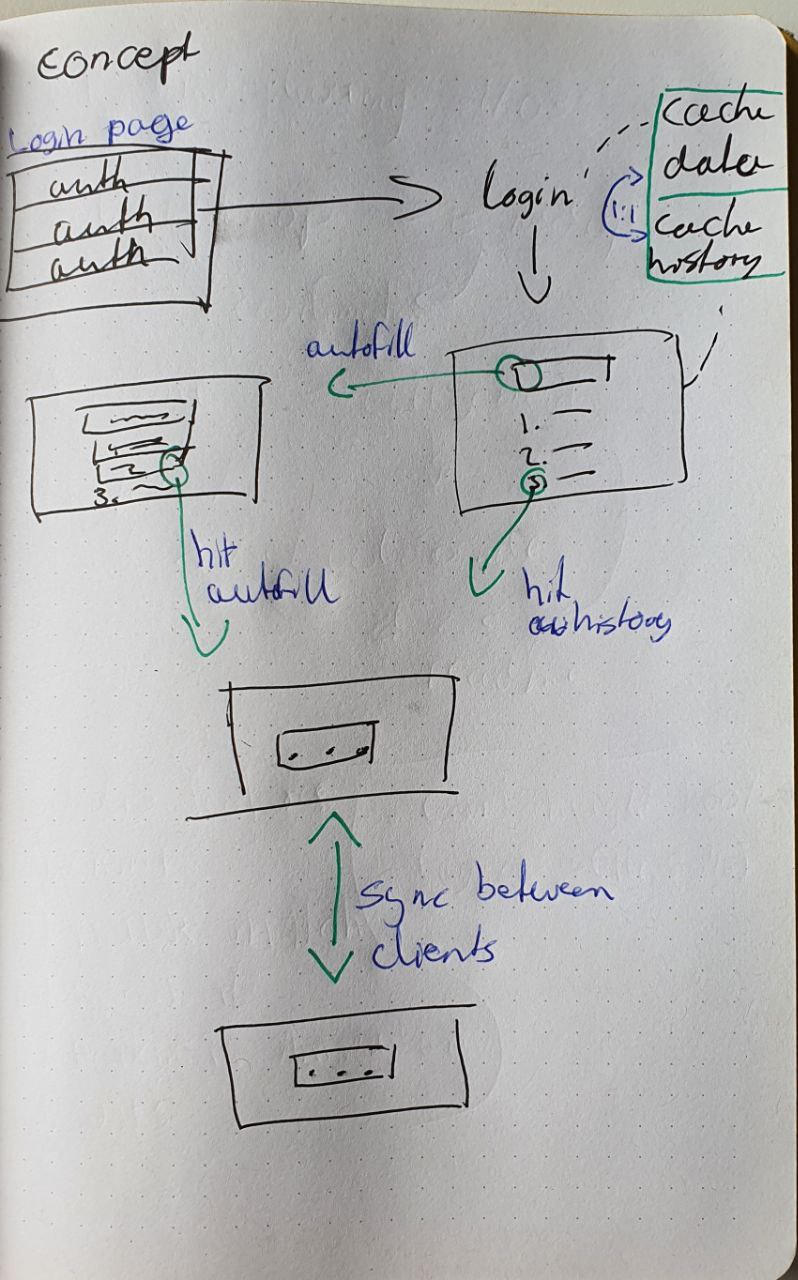 concept
Login page
auth
auth
auth
Login
cache
data
1:1
cache
history
autofill
1.
2.
3
2
3.
hit
autofill
hit
history
sync between
clients